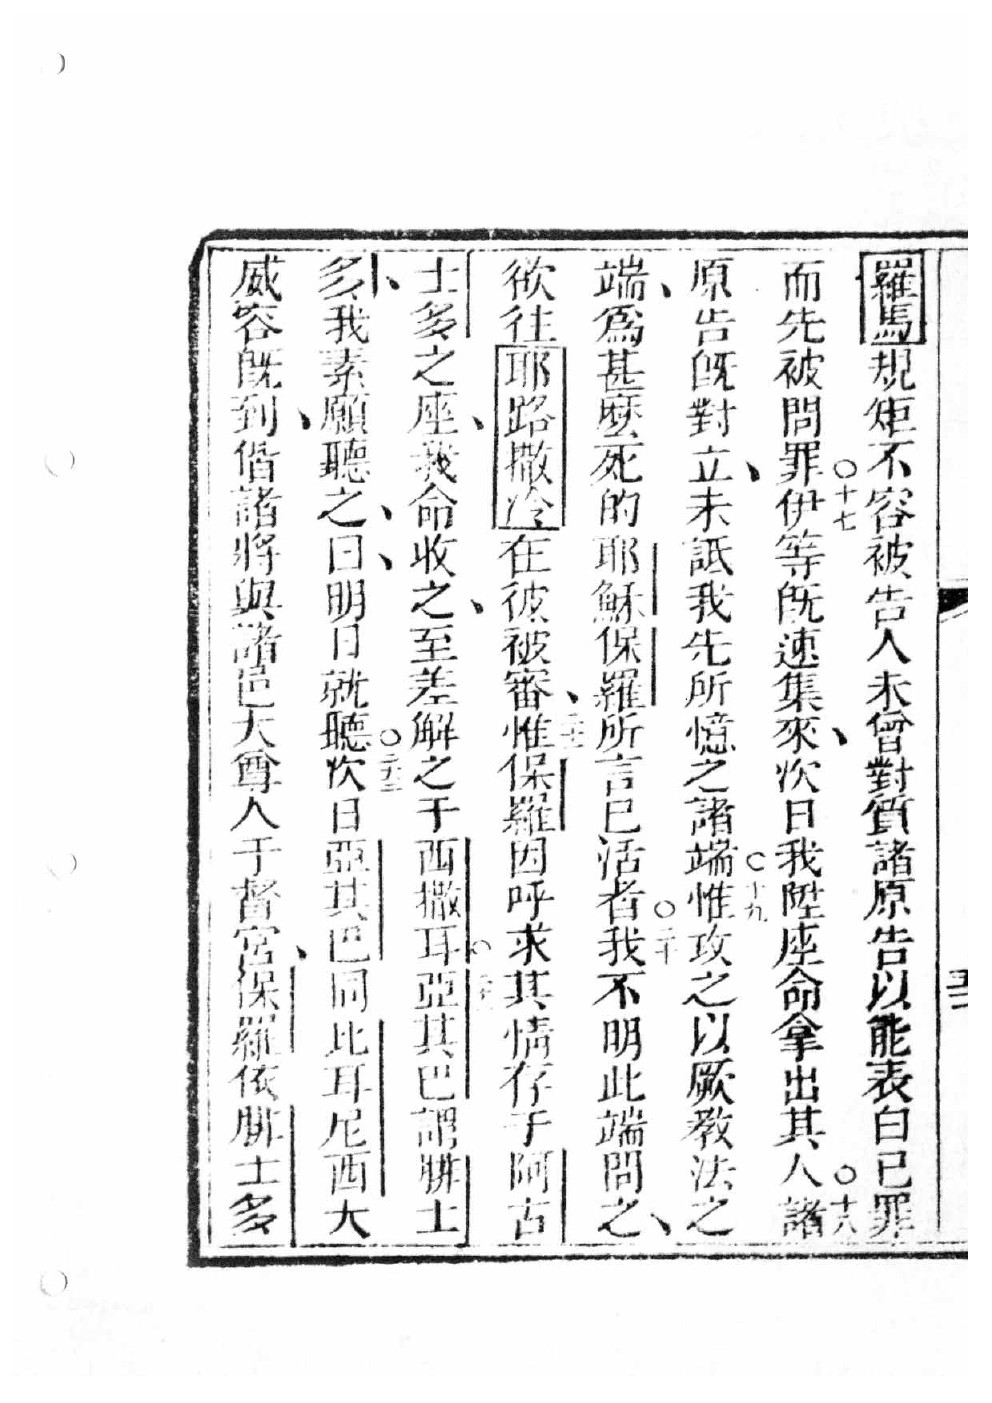 羅馬規矩不容被告人未曾對質諸原告以能表白已罪
而先被問罪○十七伊等旣速集來、次日我陞座命拿出其人○十八諸
原告旣對立、未詆我先所憶之諸端○十九惟攻之以厥敎法之
端、爲甚麼死的耶穌保羅所言已活者○二十我不明此端問之、
欲往耶路撒冷在彼被審、惟保羅因呼求其情存于阿古
士多之座、我命收之、至差解之于西撒耳○亞其巴謂腓士
多、我素願聽之、曰、明日就聽○二十三次日亞其巴同比耳尼西大
威容旣到、偕諸將與諸邑大尊人于督宮、保羅依腓士多